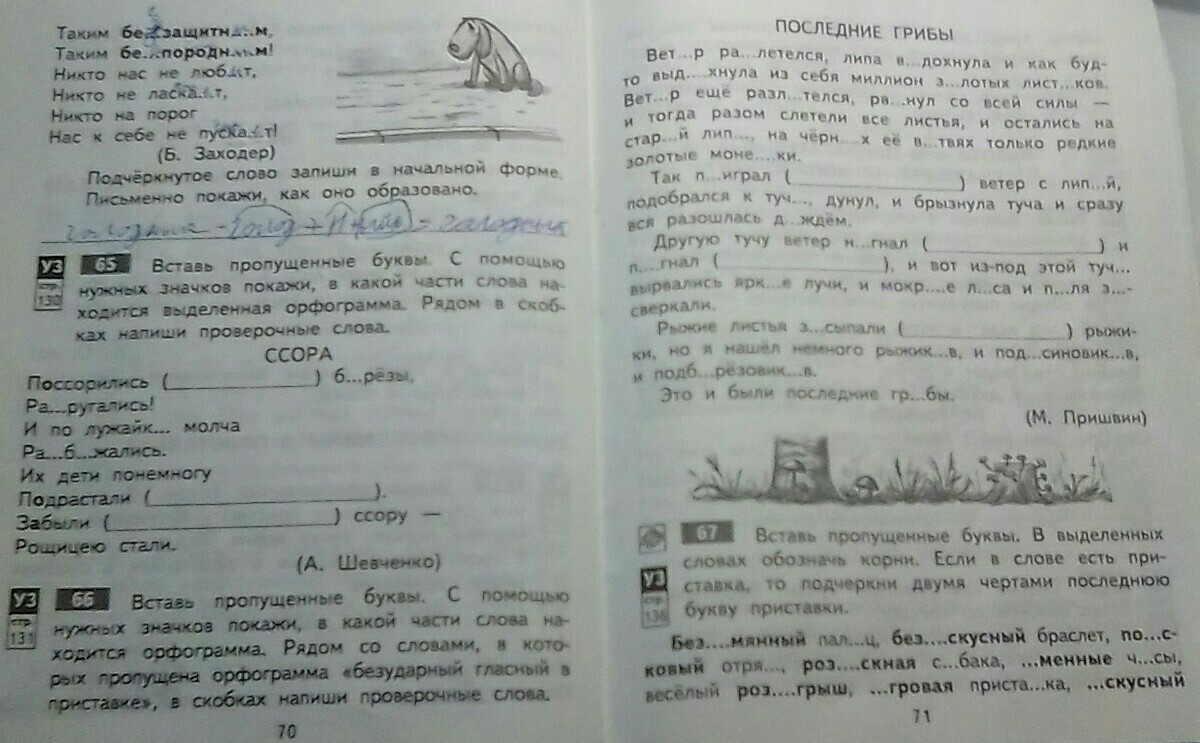 Таким бе...защитн...м,
Таким бе...породн...м!
Никто нас не люб...т,
Никто не ласка...т,
Никто на порог
Нас к себе не пуска...т!
(Б. Заходер)
Подчёркнутое слово запиши в начальной форме.
Письменно покажи, как оно образовано.
УЗ
стр.
130
65 Вставь пропущенные буквы. С помощью
нужных значков покажи, в какой части слова на-
ходится выделенная орфограмма. Рядом в скоб-
ках напиши проверочные слова.
ССОРА
Поссорились (____________) б...рёзы,
Ра...ругались!
И по лужайк... молча
Ра...б...жались.
Их дети понемногу
Подрастали (____________).
Забыли (____________) ссору —
Рощицею стали.
(А. Шевченко)
УЗ
стр.
131
66 Вставь пропущенные буквы. С помощью
нужных значков покажи, в какой части слова на-
ходится орфограмма. Рядом со словами, в кото-
рых пропущена орфограмма «безударный гласный в
приставке», в скобках напиши проверочные слова.
70
ПОСЛЕДНИЕ ГРИБЫ
Вет...р ра...летелся, липа в...дохнула и как буд-
то выд....хнула из себя миллион з...лотых лист...ков.
Вет...р ещё разл...телся, ра...нул со всей силы —
и тогда разом слетели все листья, и остались на
стар...й лип..., на чёрн...х её в...твях только редкие
золотые моне....ки.
Так п...играл (____________) ветер с лип...й,
подобрался к туч..., дунул, и брызнула туча и сразу
вся разошлась д...ждём.
Другую тучу ветер н...гнал (____________) и
п....гнал (____________), и вот из-под этой туч...
вырвались ярк...е лучи, и мокр....е л...са и п...ля з...-
сверкали.
Рыжие листья з...сыпали (____________) рыжи-
ки, но я нашёл немного рыжик...в, и под...синовик...в,
и подб...рёзовик...в.
Это и были последние гр...бы.
(М. Пришвин)
УЗ
стр.
136
67 Вставь пропущенные буквы. В выделенных
словах обозначь корни. Если в слове есть при-
ставка, то подчеркни двумя чертами последнюю
букву приставки.
Без....мянный пал...ц, без....скусный браслет, по...с-
ковый отря..., роз....скная с...бака, ...менные ч...сы,
весёлый роз....грыш, ...гровая приста...ка, ...скусный
71